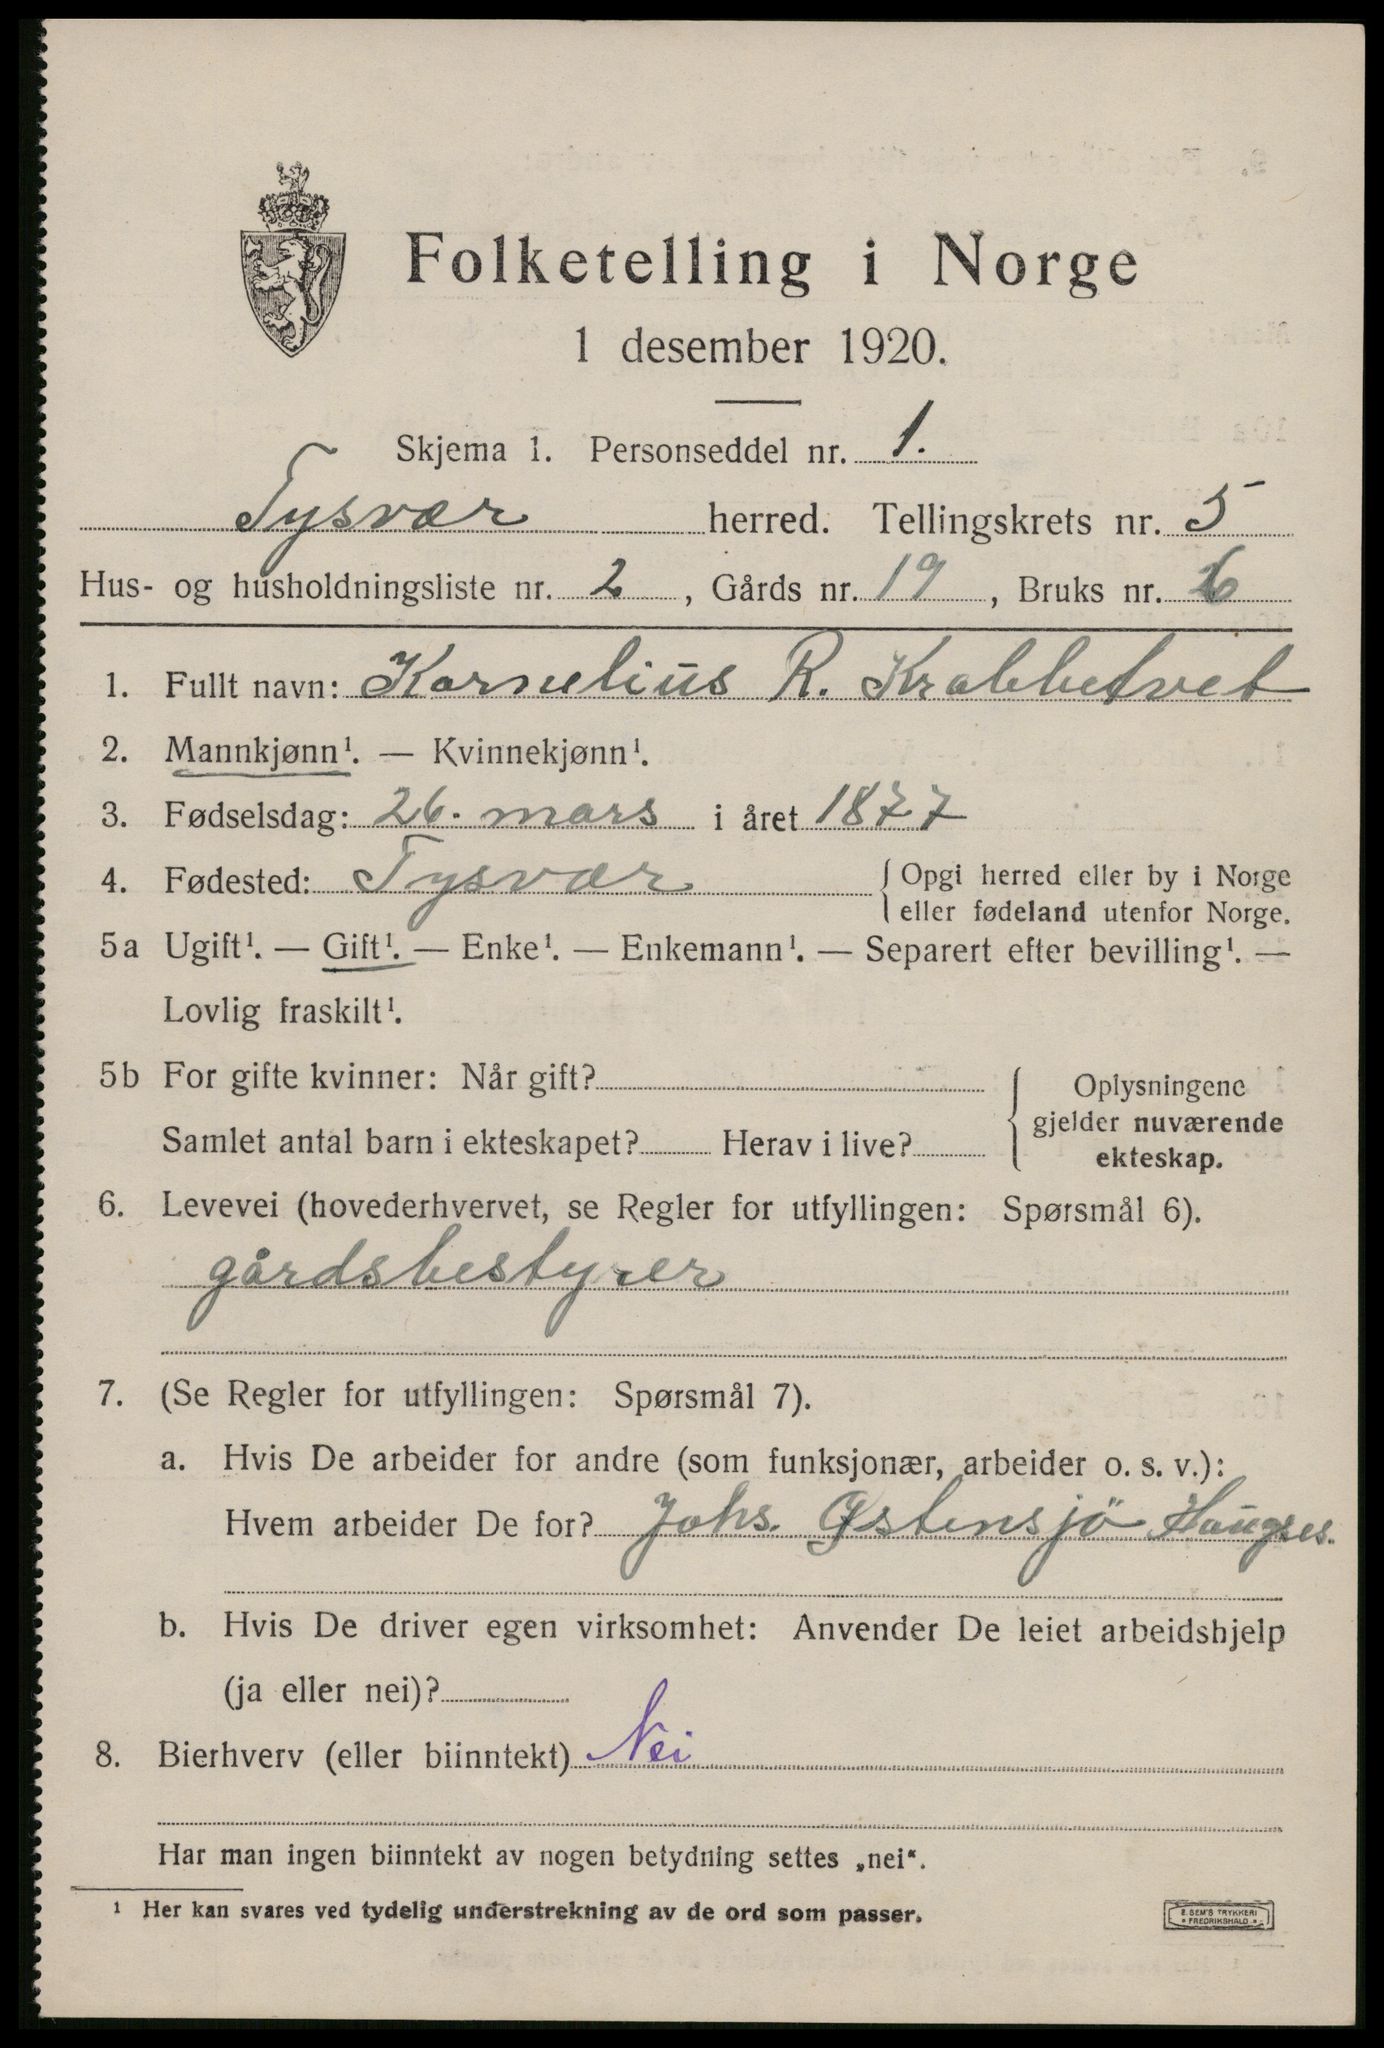 Folketelling i Norge
1 desember 1920.
Skjema 1. Personseddel nr. 1.
Tysvær herred. Tellingskrets nr. 5
Hus- og husholdningsliste nr. 2, Gårds nr. 19, Bruks nr. 6
1. Fullt navn: Kornelius R. Krabbetvet
2. Mannkjønn¹. — Kvinnekjønn¹.
3. Fødselsdag: 26. mars i året 1877
4. Fødested: Tysvær { Opgi herred eller by i Norge
eller fødeland utenfor Norge.
5a Ugift¹. — Gift¹. — Enke¹. — Enkemann¹. — Separert efter bevilling¹. —
Lovlig fraskilt¹.
5b For gifte kvinner: Når gift? { Oplysningene
gjelder nuværende
Samlet antal barn i ekteskapet? Herav i live?
ekteskap.
6. Levevei (hovederhvervet, se Regler for utfyllingen: Spørsmål 6).
gårdsbestyrer
7. (Se Regler for utfyllingen: Spørsmål 7).
a. Hvis De arbeider for andre (som funksjonær, arbeider o. s. v.):
Hvem arbeider De for? Johs. Østensjö Haugses.
b. Hvis De driver egen virksomhet: Anvender De leiet arbeidshjelp
(ja eller nei)?
8. Bierhverv (eller biinntekt) Nei
Har man ingen biinntekt av nogen betydning settes „nei“.
¹ Her kan svares ved tydelig understrekning av de ord som passer.
E. SEM'S TRYKKERI
FREDRIKSHALD